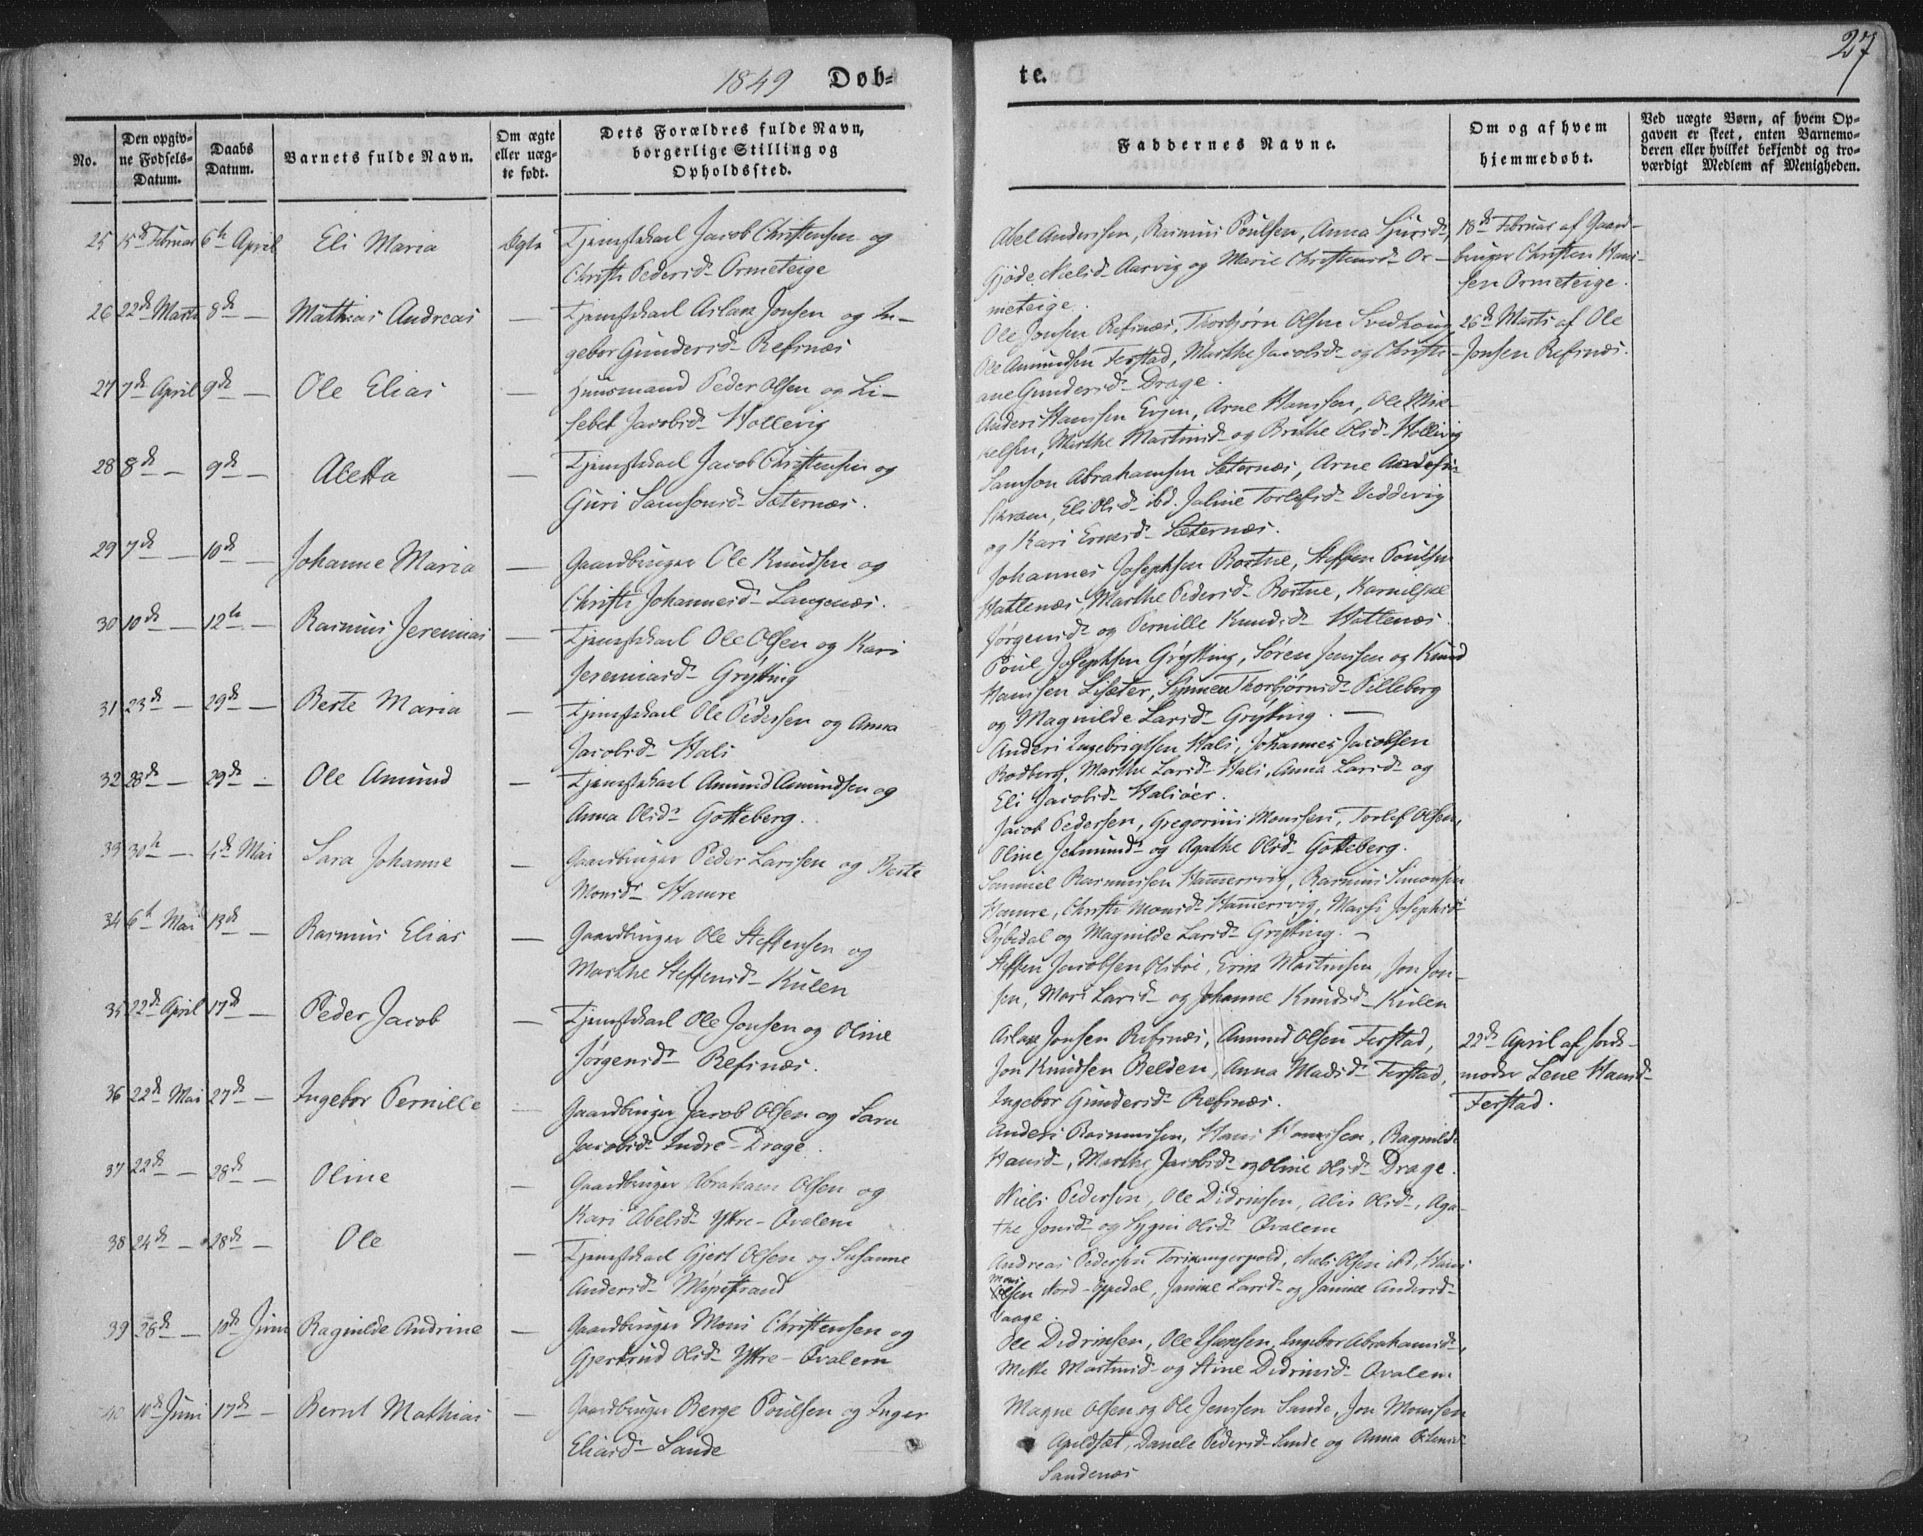 1849 Døb-
te.
27
No.
Den opgiv-
ne Fødsels-
Datum.
Daabs
Datum.
Barnets fulde Navn.
Om ægte
eller uæg-
te født.
Dets Forældres fulde Navn,
borgerlige Stilling og
Opholdssted.
Faddernes Navne.
Om og af hvem
hjemmedøbt.
Ved uægte Børn, af hvem Op-
gaven er skeet, enten Barnemo-
deren eller hvilket bekjendt og tro-
værdigt Medlem af Menigheden.
25 15de Februar 6te April Eli Maria Ægte Tjenestekarl Jacob Christensen og
Christi Pedersd- Ormeteige
Abel Anderssen, Rasmus Poulsen, Anna Sjursd-,
Gjøde Nielsd- Aarvig og Marie Christensd- Or-
meteige.
18de Februar af Gaard-
bruger Christen Hans-
sen Ormeteige.
26 22de Marts 8de — Mathias Andreas — Tjenestekarl Aslak Jonsen og In-
gebor Gundersd- Refsnæs
Ole Jonsen Refsnæs, Thorbjørn Olsen Svedhoug,
Ole Amundsen Ferstad, Marthe Jacobsd- og Christi-
ane Gundersd- Drage.
26de Marts af Ole
Jonsen Refsnæs.
27 7de April 9de — Ole Elias — Huusmand Peder Olsen og Li-
sebet Jacobsd- Hollevig
Anders Hanssen Evjen, Arne Hanssen, Ole Mik-
kelsen, Marthe Martinsd- og Brithe Olsd- Hollevig
28 8de — 9de — Aletta — Tjenestekarl Jacob Christensen og
Guri Samsonsd- Sæternæs.
Samson Abrahamsen Sæternæs, Arne
Skram, Eli Olsd- ibd. Jaline Torlefsd- Veddevig
og Kari Ernsd- Sæternæs.
29 7de — 10de — Johanne Maria — Gaardbruger Ole Knudsen og
Christi Johannesd- Langenæs.
Johannes Josephsen Rostne, Steffen Poulsen
Hattenæs, Marthe Pedersd- Rostne,
Jørgensd- og Pernille Knudsd- Hattenæs.
30 10de — 12te — Rasmus Jeremias — Tjenestekarl Ole Olsen og Kari
Jeremiasd- Grytting
Poul Josephsen Grytting, Søren Jenssen og Knud
Hanssen Lisæter, Synneu Thorbjørnsd- Pilleberg
og Magnilde Larsd- Grytting. —
31 23de — 29de — Berte Maria — Tjenestekarl Ole Pedersen og Anna
Jacobsd- Hals
Anders Ingebrigtsen Hals, Johannes Jacobsen
Rodberg, Marthe Larsd- Hals, Anna Larsd- og
Eli Jacobsd- Halsøer.
32 28de — 29de — Ole Amund — Tjenestekarl Amund Amundsen og
Anna Olsd- Gotteberg.
Jacob Pedersen, Gregorius Monssen, Torlef Olsen,
Oline Jetmundsd- og Agathe Olsd- Gotteberg.
33 30te — 4de Mai Sara Johanne — Gaardbruger Peder Larssen og Berte
Monsd- Hamre
Samuel Rasmussen Hammersvig, Rasmus Simonsen
Hamre, Christi Monsd- Hammersvig, Massi Josephsd-
Dybedal og Magnilde Larsd- Grytting. —
34 6te Mai 13de — Rasmus Elias — Gaardbruger Ole Steffensen og
Marthe Steffensd- Kulen
Steffen Jacobsen Osbøe, Erik Martinsen, Jon Jon-
sen, Mari Larsd- og Johanne Knudsd- Kulen
35 22de April 17de — Peder Jacob — Tjenestekarl Ole Jonsen og Oline
Jørgensd- Refsnæs.
Aslak Jonsen Refsnæs, Amund Olsen Ferstad,
Jon Knudsen Belden, Anna Madsd- Ferstad,
Ingebor Gundersd- Refsnæs.
22de April af Jord-
moder Lene Hansd-
Ferstad.
36 22de Mai 27de — Ingebor Pernille — Gaardbruger Jacob Olsen og Sara
Jacobsd- Indre-Drage.
Anders Rasmussen, Hans Hanssen, Ragnilde
Hansd-, Marthe Jacobsd- og Oline Olsd- Drage.
37 22de — 28de — Oline — Gaardbruger Abraham Olsen og
Kari Abelsd- Yttre-Qvalem
Niels Pedersen, Ole Didriksen, Alis Olsd-, Aga-
the Jonsd- og Sygni Olsd- Qvalem
38 24de — 28de — Ole — Tjenestekarl Gjert Olsen og Susanne
Andersd- Myrestrand
Andreas Pedersen, Nils Olsen ibd, Hans
Mons
Olsen Nord-Oppedal, Janikke Larsd- og Janikke Andersd-
Vaage.
39 28de — 10de Juni Ragnilde Andrine — Gaardbruger Mons Christensen og
Gjertrud Olsd- Yttre-Qvalem
Ole Didriksen, Ole, Ingebor Abrahamsd-,
Mette Martinsd- og Stine Didriksd- Qvalem
40 10de Juni 17de — Bernt Mathias — Gaardbruger Berge Poulsen og Inger
Eliasd- Sande
Magne Olsen og Ole Jenssen Sande, Jon Monssen
Apeldsæt, Danele Pedersd- Sande og Anna
Sandenæs